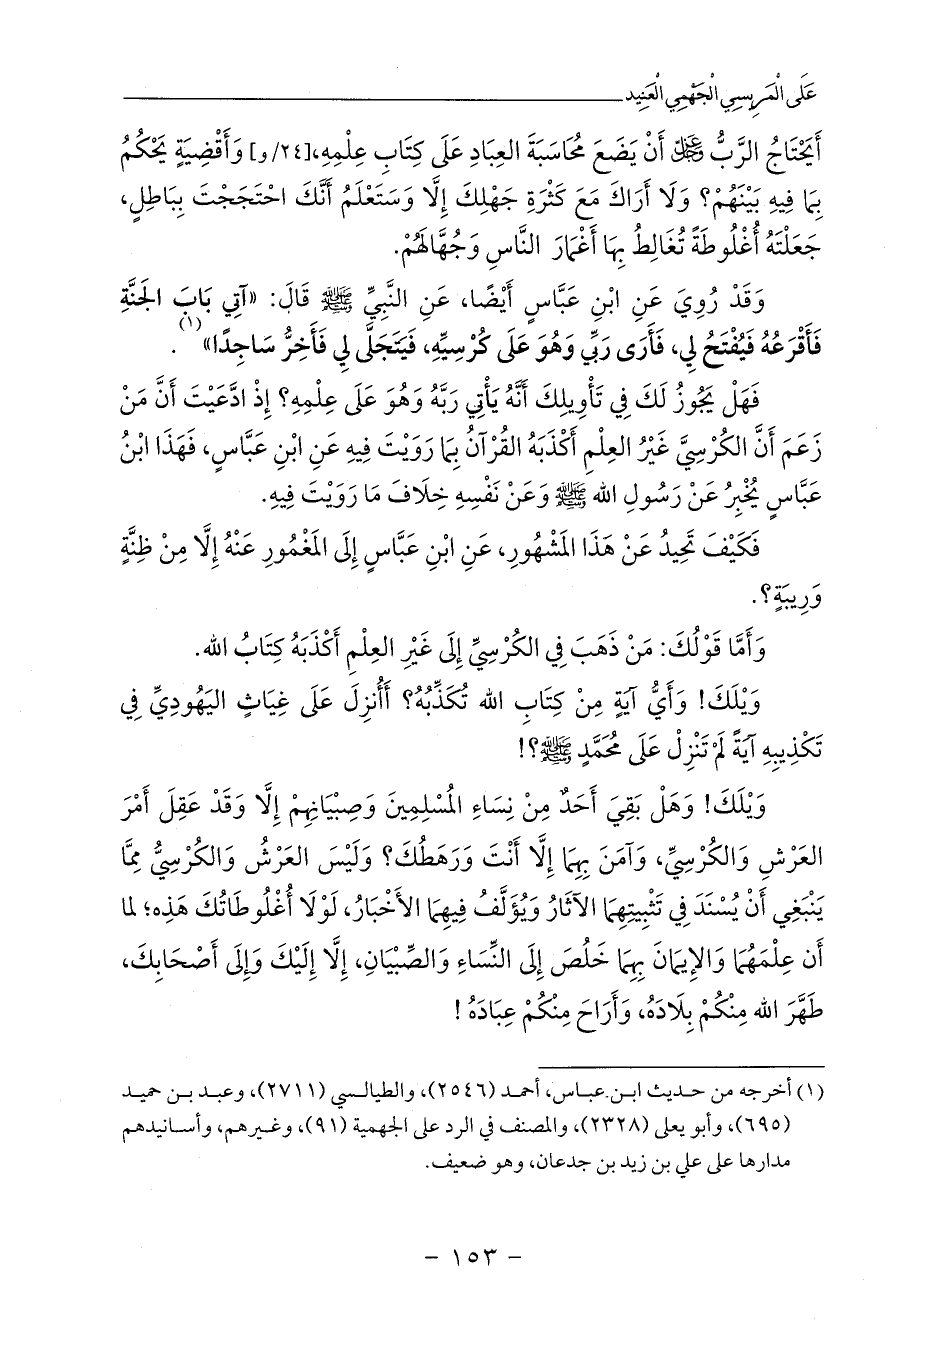 عَلَى الْمَرِيسِي الْجَهْمِي الْعَنِيد
أَيَحْتَاجُ الرَّبُّ ﷻ أَنْ يَضَعَ مُحَاسَبَةَ العِبَادِ عَلَى كِتَابِ عِلْمِهِ،[٢٤/ و] وَأَقْضِيَةٍ يَحْكُمُ
بِمَا فِيهِ بَيْنَهُمْ؟ وَلَا أَرَاكَ مَعَ كَثْرَةِ جَهْلِكَ إِلَّا وَسَتَعْلَمُ أَنَّكَ احْتَجَجْتَ بِبَاطِلٍ،
جَعَلْتَهُ أُغْلُوطَةً تُغَالِطُ بِهَا أَغْمَارَ النَّاسِ وَجُهَّالَهُمْ.
وَقَدْ رُوِيَ عَنِ ابْنِ عَبَّاسٍ أَيْضًا، عَنِ النَّبِيِّ ﷺ قَالَ: «آتِي بَابَ الجَنَّةِ
فَأَقْرَعُهُ فَيُفْتَحُ لِي، فَأَرَى رَبِّي وَهُوَ عَلَى كُرْسِيِّهِ، فَيَتَجَلَّى لِي فَأَخِرُّ سَاجِدًا»(١).
فَهَلْ يَجُوزُ لَكَ فِي تَأْوِيلِكَ أَنَّهُ يَأْتِي رَبَّهُ وَهُوَ عَلَى عِلْمِهِ؟ إِذْ ادَّعَيْتَ أَنَّ مَنْ
زَعَمَ أَنَّ الكُرْسِيَّ غَيْرُ العِلْمِ أَكْذَبَهُ القُرْآنُ بِمَا رَوَيْتَ فِيهِ عَنِ ابْنِ عَبَّاسٍ، فَهَذَا ابْنُ
عَبَّاسٍ يُخْبِرُ عَنْ رَسُولِ الله ﷺ وَعَنْ نَفْسِهِ خِلَافَ مَا رَوَيْتَ فِيهِ.
فَكَيْفَ تَحِيدُ عَنْ هَذَا المَشْهُورِ، عَنِ ابْنِ عَبَّاسٍ إِلَى المَغْمُورِ عَنْهُ إِلَّا مِنْ ظِنَّةٍ
وَرِيبَةٍ؟.
وَأَمَّا قَوْلُكَ: مَنْ ذَهَبَ فِي الكُرْسِيِّ إِلَى غَيْرِ العِلْمِ أَكْذَبَهُ كِتَابُ الله.
وَيْلَكَ! وَأَيُّ آيَةٍ مِنْ كِتَابِ الله تُكَذِّبُهُ؟ أَأُنْزِلَ عَلَى غِيَاثٍ اليَهُودِيِّ فِي
تَكْذِيبِهِ آيَةً لَمْ تَنْزِلْ عَلَى مُحَمَّدٍ ﷺ؟!
وَيْلَكَ! وَهَلْ بَقِيَ أَحَدٌ مِنْ نِسَاءِ المُسْلِمِينَ وَصِبْيَانِهِمْ إِلَّا وَقَدْ عَقِلَ أَمْرَ
العَرْشِ وَالكُرْسِيِّ، وَآمَنَ بِهِمَا إِلَّا أَنْتَ وَرَهَطُكَ؟ وَلَيْسَ العَرْشُ وَالكُرْسِيُّ مِمَّا
يَنْبَغِي أَنْ يُسْنَدَ فِي تَثْبِيتِهِمَا الآثَارُ وَيُؤَلَّفُ فِيهِمَا الأَخْبَارُ، لَوْلَا أُغْلُوطَاتُكَ هَذِهِ؛ لما
أَن عِلْمَهُمَا وَالإِيمَانَ بِهِمَا خَلُصَ إِلَى النِّسَاءِ وَالصِّبْيَانِ، إِلَّا إِلَيْكَ وَإِلَى أَصْحَابِكَ،
طَهَّرَ الله مِنْكُمْ بِلَادَهُ، وَأَرَاحَ مِنْكُمْ عِبَادَهُ !
(١) أخرجه من حديث ابن عباس، أحمد (٢٥٤٦)، والطيالسي (٢٧١١)، وعبد بن حميد
(٦٩٥)، وأبو يعلى (٢٣٢٨)، والمصنف في الرد على الجهمية (٩١)، وغيرهم، وأسانيدهم
مدارها على علي بن زيد بن جدعان، وهو ضعيف.
- ١٥٣ -